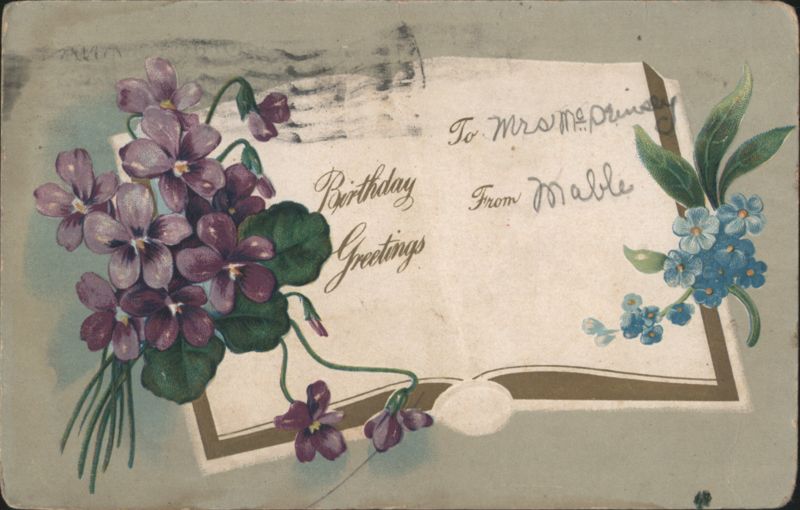 Birthday
Greetings
To Mrs Mc
From Mable